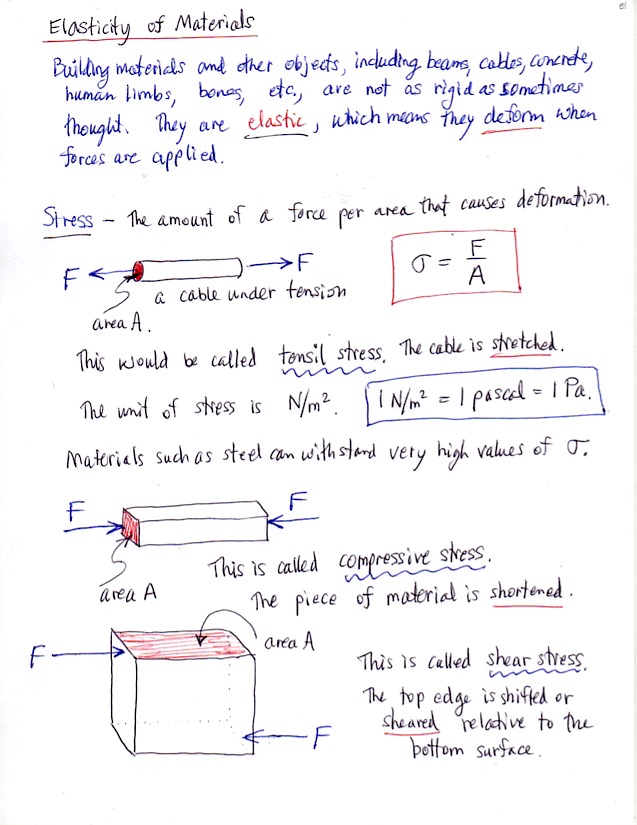 01
Elasticity of Materials
Building materials and other objects, including beams, cables, concrete,
human limbs, bones, etc., are not as rigid as sometimes
thought. They are elastic, which means they deform when
forces are applied.
Stress – The amount of a force per area that causes deformation.
F F
σ = F/A
a cable under tension
area A.
This would be called tensil stress. The cable is stretched.
The unit of stress is N/m². 1 N/m² = 1 pascal = 1 Pa.
Materials such as steel can withstand very high values of σ.
F F
area A
This is called compressive stress.
The piece of material is shortened.
area A
F
This is called shear stress.
The top edge is shifted or
sheared relative to the
bottom surface.
F